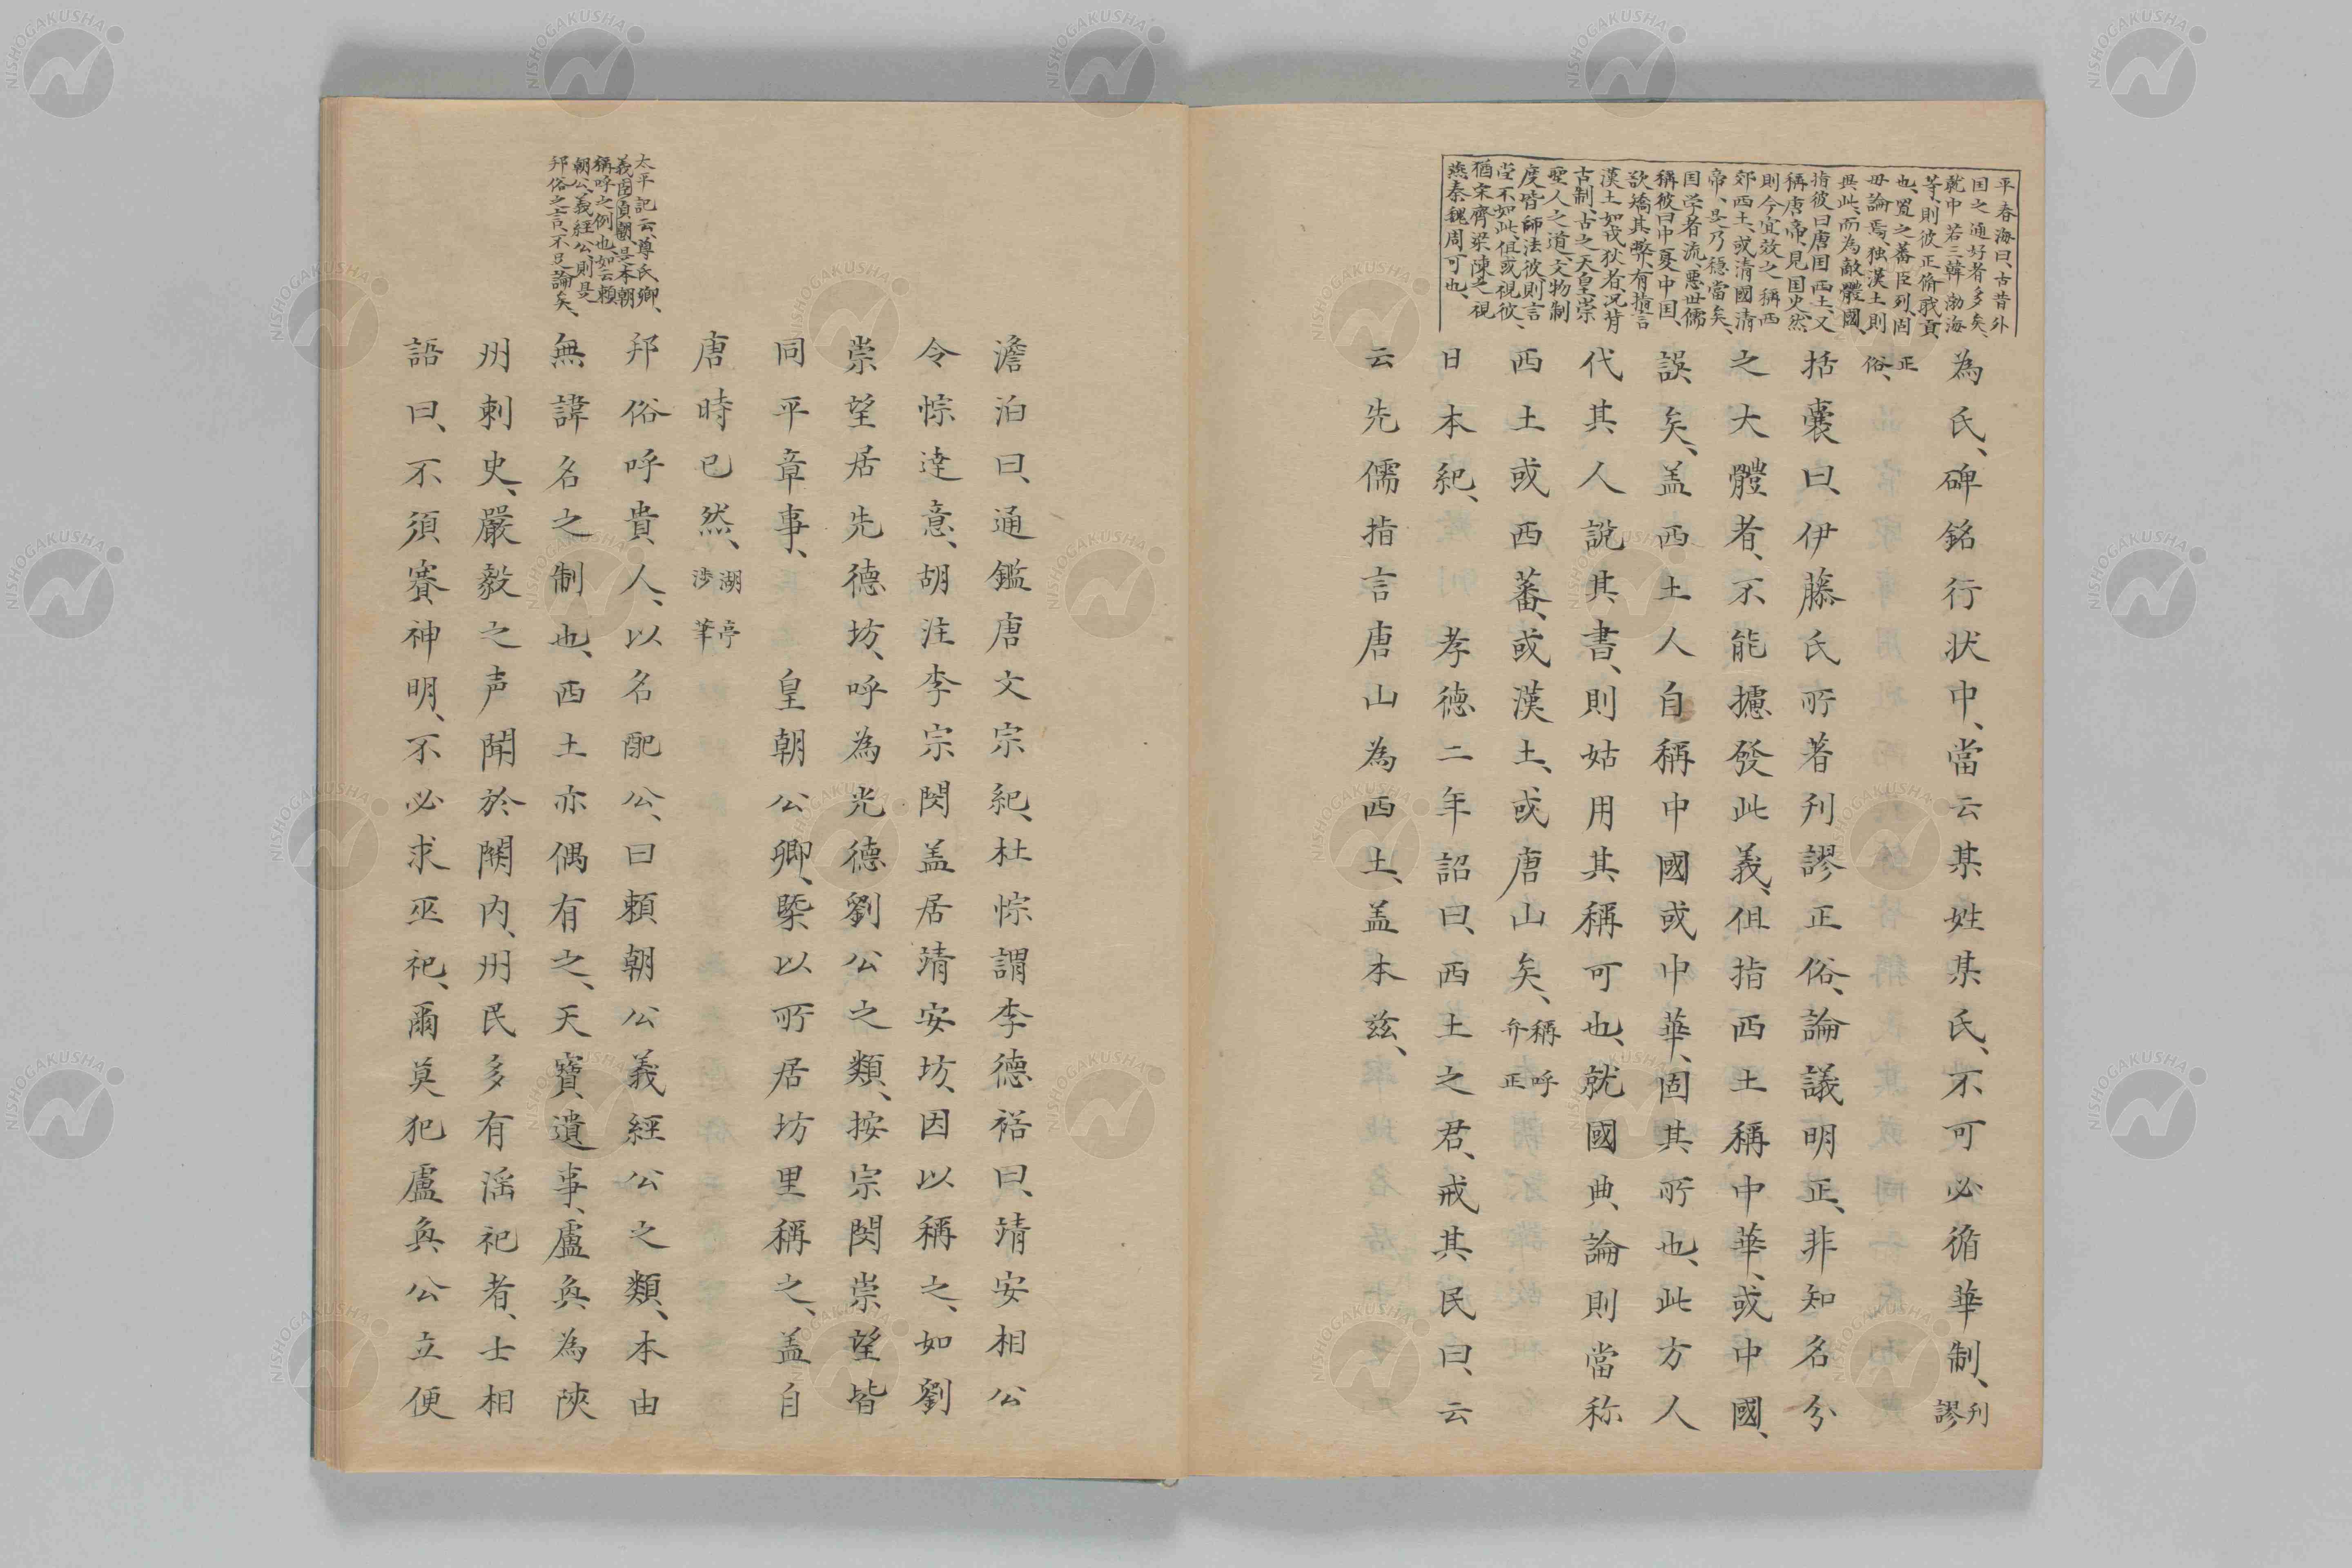 平春海曰、古昔外
囯之通好者多矣、
就中若三韓渤海
等、則彼正脩職貢
也、置之蕃臣列、固
毋論焉、独漢土則
與此、而為敵體國、
指彼曰唐囯西土、又
稱唐帝、見囯史、然
則今宜效之稱西
郊西土、或清國清
帝、是乃穏當矣、
囯学者流、悪世儒
稱彼曰中夏中囯、
欲矯其弊、有擯言
漢土如戎狄者、況背
古制、古之天皇崇
聖人之道、文物制
度皆師法彼、則言
豈不如此、但或視彼、
猶宋齊梁陳之視
燕秦魏周可也、
為氏、碑銘行状中、當云某姓某氏、不可必循華制、刊謬
正俗、
括囊曰、伊藤氏所著刊謬正俗、論議明正、非知名分
之大體者、不能攄發此義、但指西土稱中華、或中國、
誤矣、盖西土人自稱中國或中華、固其所也、此方人
代其人說其書、則姑用其稱可也、就國典、論則當称
西土或西蕃、或漢土、或唐山矣、稱呼弁正
日本紀、孝徳二年詔曰、西土之君、戒其民曰、云
云先儒指言唐山為西土、盖本兹、
澹泊曰、通鑑唐文宗紀、杜悰謂李徳裕曰、靖安相公
令悰達意、胡注李宗閔盖居靖安坊、因以稱之、如劉
崇望居先德坊、呼為光德劉公之類、按宗閔崇望皆
同平章事、皇朝公卿、槩以所居坊里稱之、盖自
唐時已然、湖亭涉筆
太平記云、尊氏卿、
義囯貞朝、是本朝
稱呼之例也、如云賴
朝公、義經公、則是
邦俗之言、不足論矣、
邦俗呼貴人、以名配公、曰賴朝公義經公之類、本由
無諱名之制也、西土亦偶有之、天寶遺事、盧奐為陝
州刺史、嚴毅之声聞於關内、州民多有淫祀者、士相
語曰、不須賽神明、不必求巫祀、爾莫犯盧奐公立便